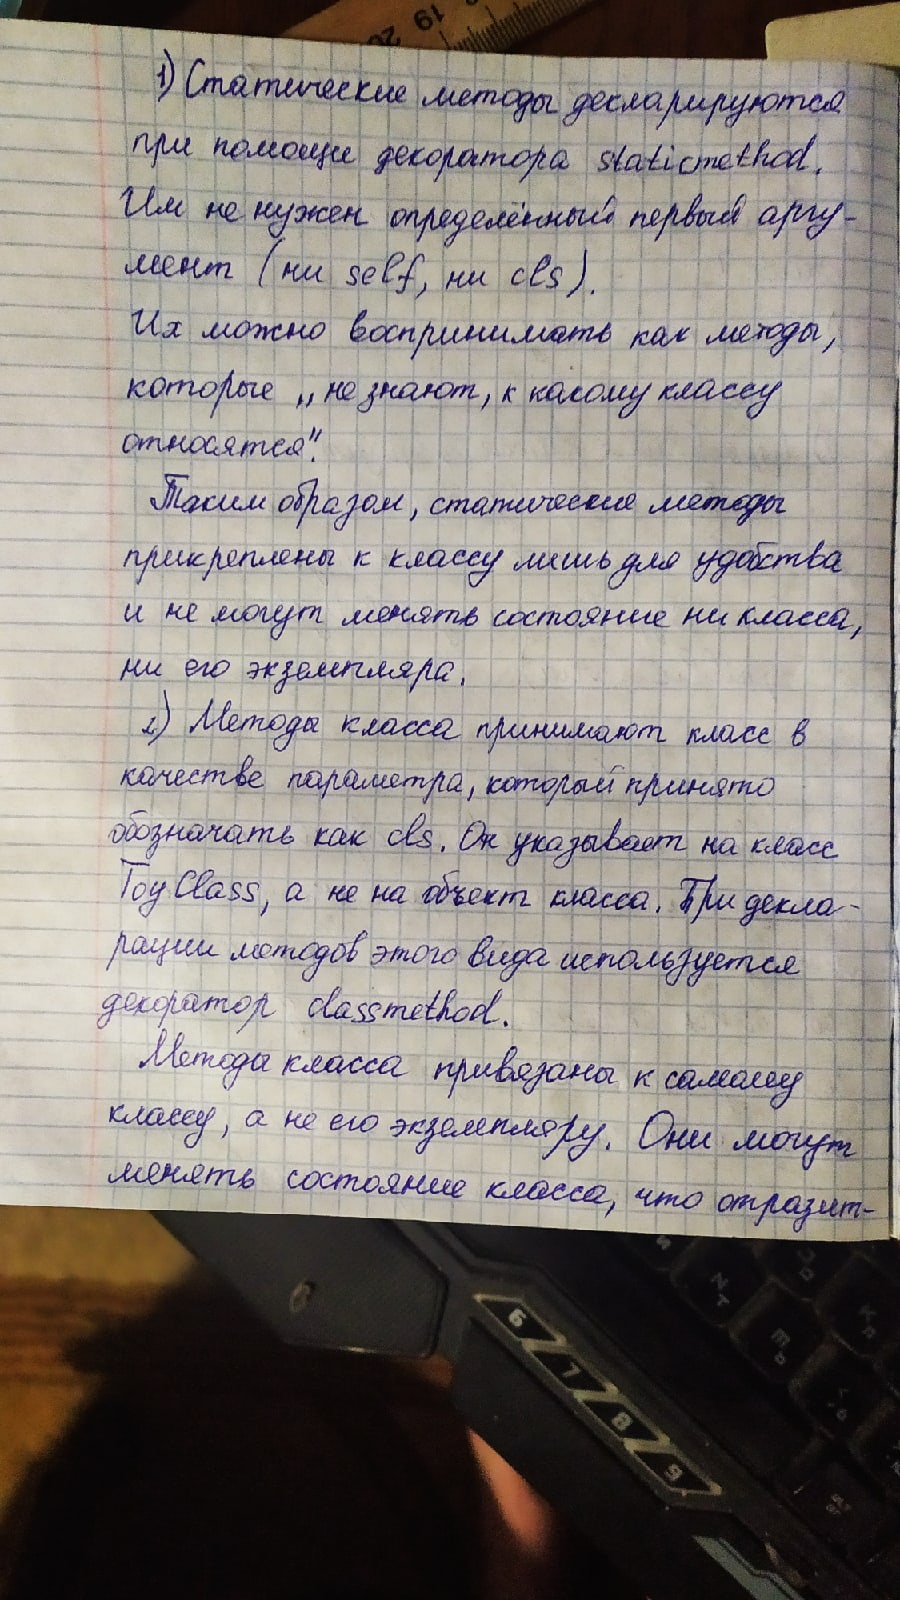 19
20
1) Статические методы декларируются
при помощи декоратора staticmethod.
Им не нужен определённый первый аргу-
мент (ни self, ни cls).
Их можно воспринимать как методы,
которые „не знают, к какому классу
относятся".
Таким образом, статические методы
прикреплены к классу лишь для удобства
и не могут менять состояние ни класса,
ни его экземпляра.
2) Методы класса принимают класс в
качестве параметра, который принято
обозначать как cls. Он указывает на класс
ToyClass, а не на объект класса. При декла-
рации методов этого вида используется
декоратор classmethod.
Методы класса привязаны к самому
классу, а не его экземпляру. Они могут
менять состояние класса, что отразит-
6
7
8
9